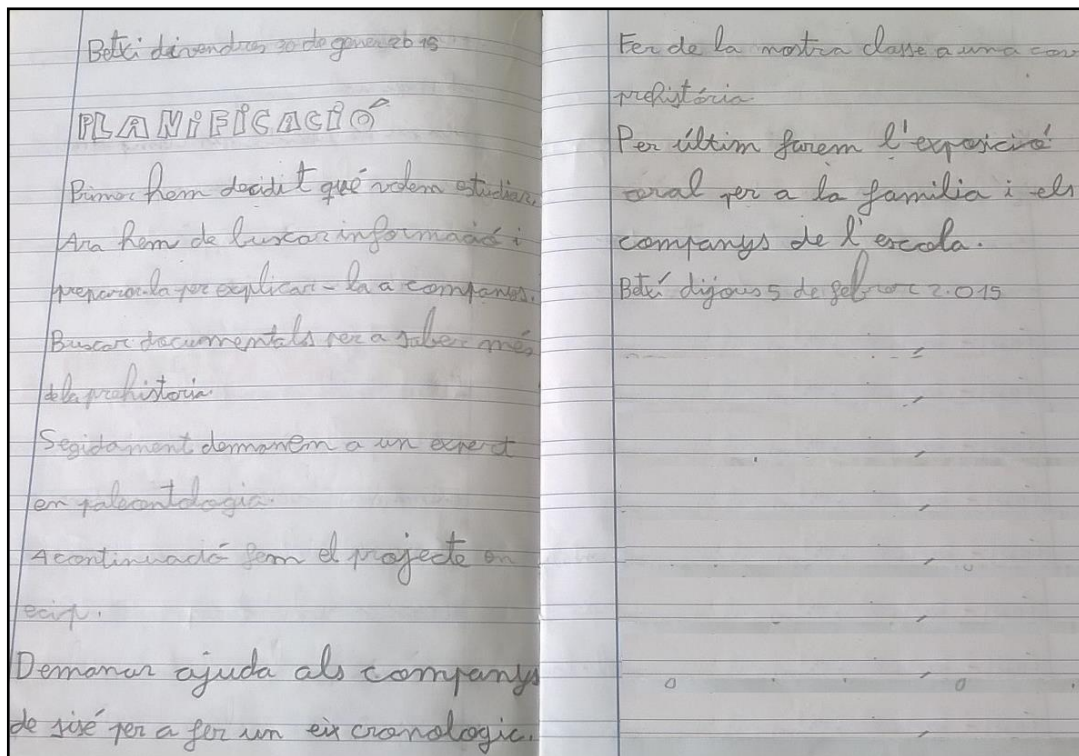 Betxi divendres 30 de gener 2015
PLANIFICACIÓ
Primer hem decidit qué volem estudiar.
Ara hem de buscar informació i
preparar-la per explicar-la a companys.
Buscar documentals per a saber més
de la prehistoria
Segidament demanem a un expert
en paleontologia.
A continuació fem el projecte en
ecip.
Demanar ajuda als companys
de sisé per a fer un eix cronologic.
Fer de la nostra classe a una cov
prehistória
Per últim farem l'exposició
oral per a la familia i els
companys de l'escola.
Betxí dijous 5 de febrer 2.015